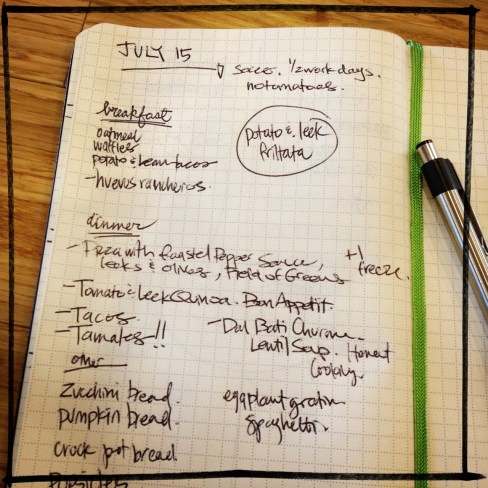 JULY 15
socco. 1/2 work days.
no tomatoes.
breakfast
oatmeal
waffles
potato & bean tacos
- huevos rancheros.
potato & leek
frittata
dinner
- Pizza with Roasted Pepper Sauce,
leeks & olives, Field of Greens
+1
freeze.
- Tomato & Leek Quinoa. Bon Appetit.
- Tacos
- Tamales!!
- Dal Bati Churma
Lentil Soup. Honest
Cooking.
other
zucchini bread.
pumpkin bread.
crock pot bread
Popsicles
eggplant gratin
spaghetti.